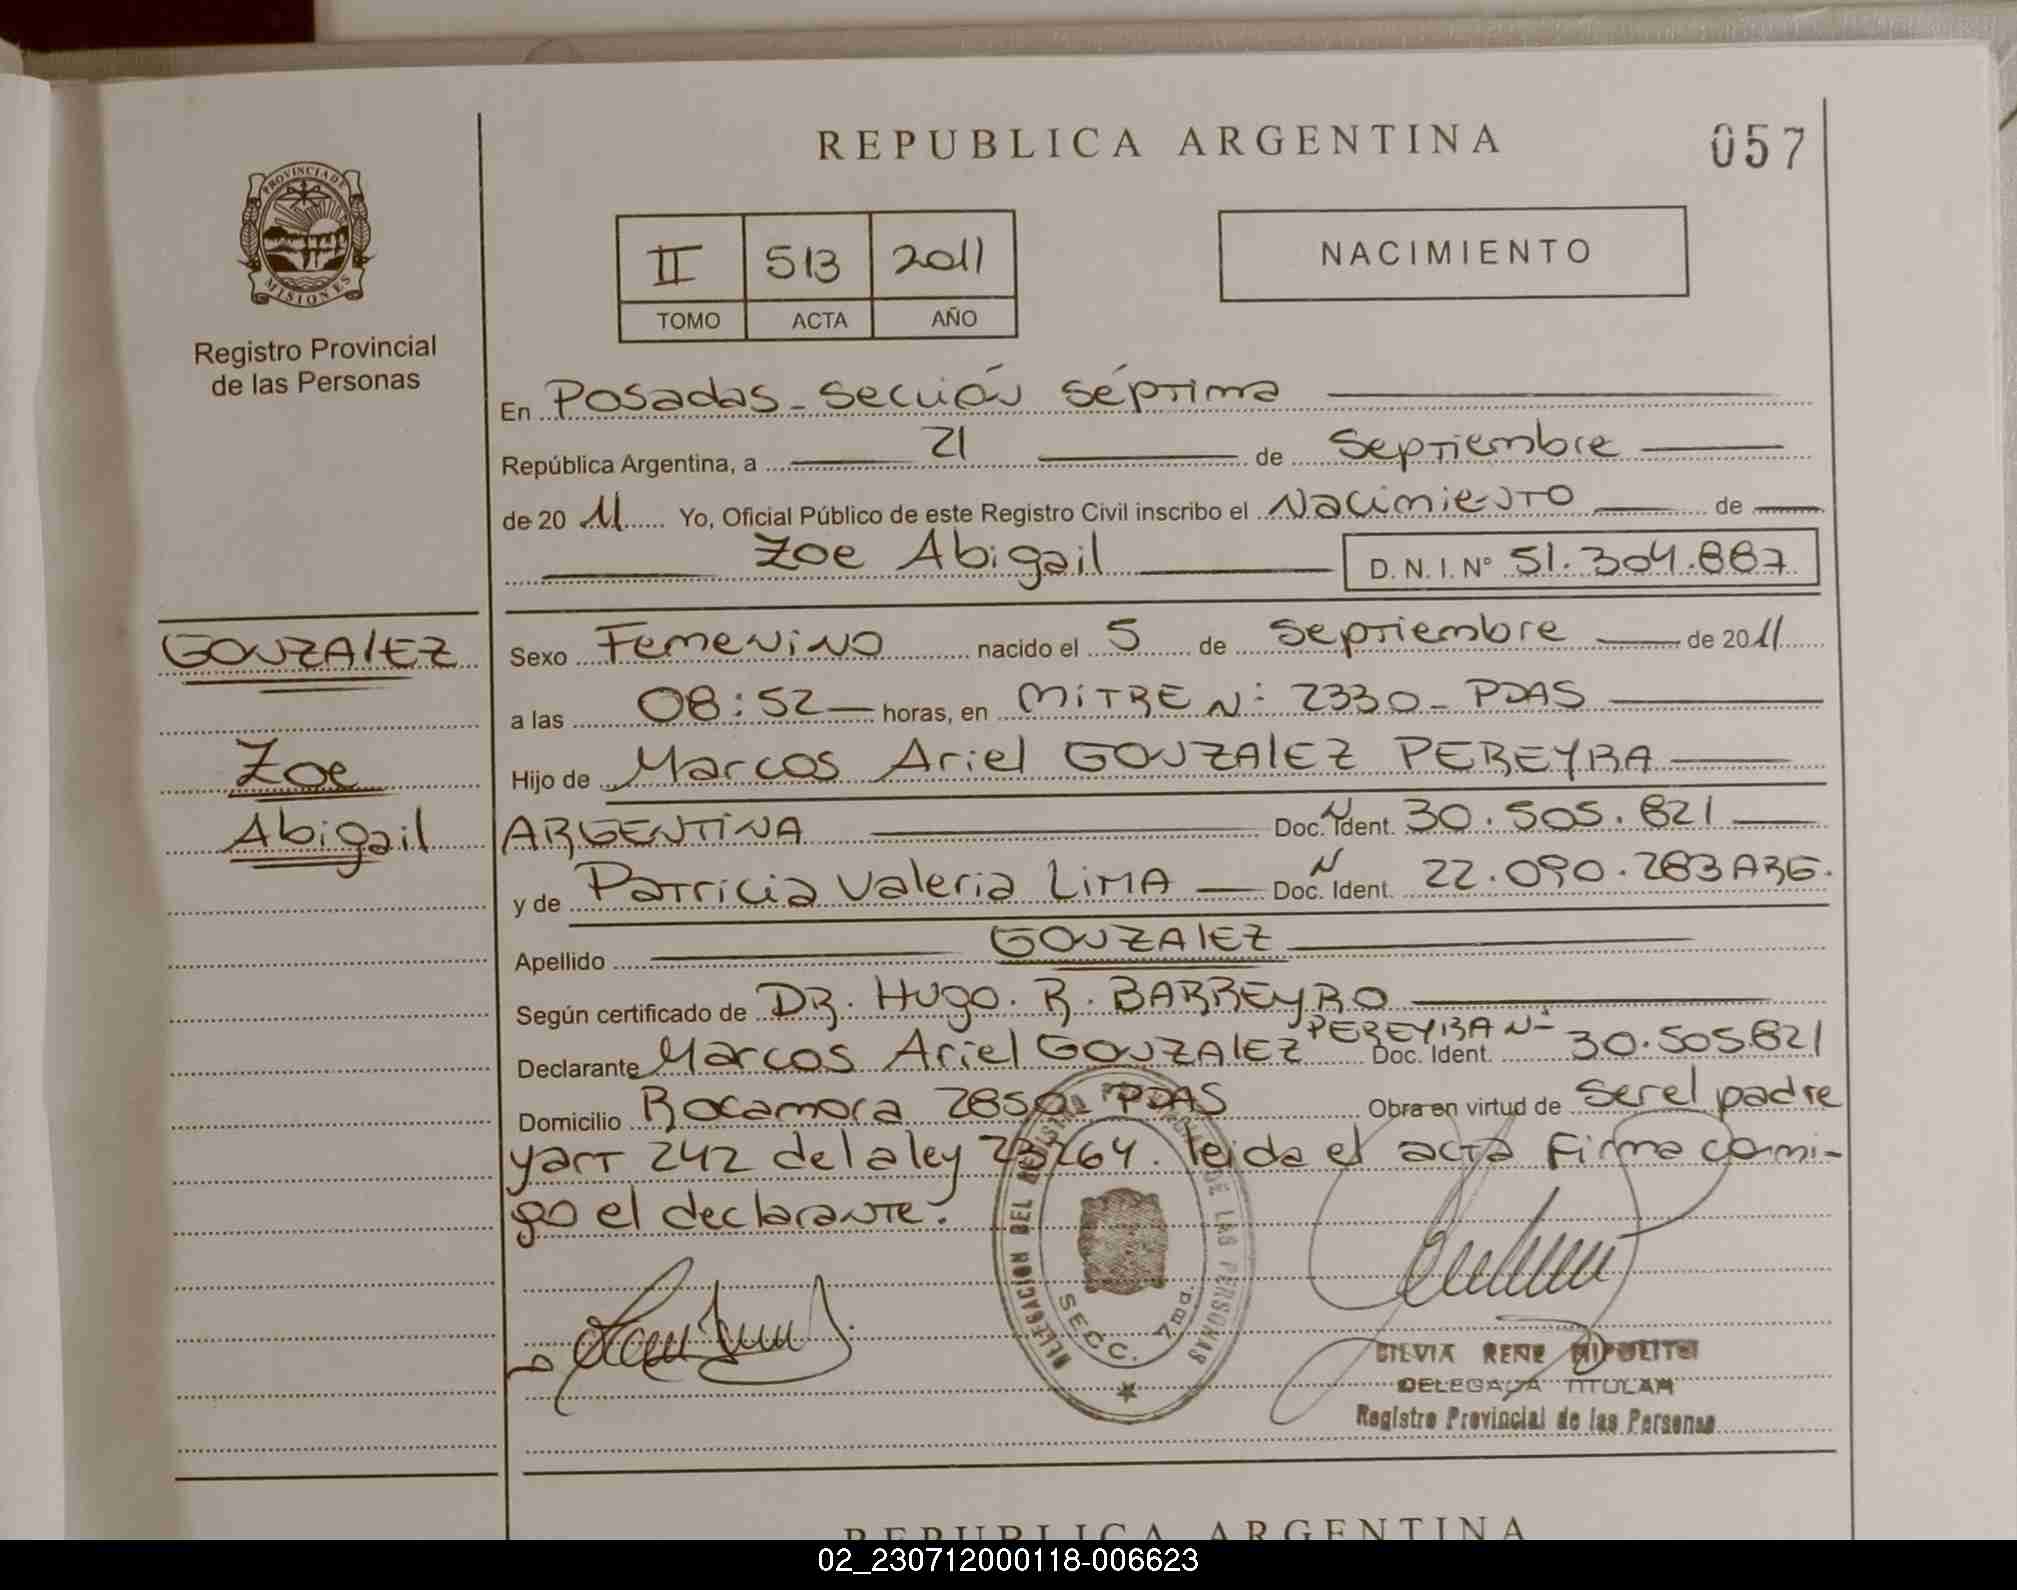 REPUBLICA ARGENTINA
057
PROVINCIA DE
MISIONES
Registro Provincial
de las Personas
II 513 2011
TOMO ACTA AÑO
NACIMIENTO
En Posadas - Sección Séptima
República Argentina, a 21 de Septiembre
de 20 11 Yo, Oficial Público de este Registro Civil inscribo el Nacimiento de
Zoe Abigail D. N. I. Nº 51.304.887
GONZALEZ
Zoe
Abigail
Sexo Femenino nacido el 5 de Septiembre de 2011
a las 08:52 horas, en MITRE N: 2330 - PDAS
Hijo de Marcos Ariel GONZALEZ PEREYRA
ARGENTINA Doc. Ident. N 30.505.821
y de Patricia Valeria LIMA Doc. Ident. N 22.090.283 ARG.
Apellido GONZALEZ
Según certificado de DR. HUGO. R. BARREYRO
Declarante Marcos Ariel GONZALEZ PEREYRA N- Doc. Ident. 30.505.821
Domicilio Rocamora 2850 - PDAS Obra en virtud de ser el padre
y art 242 de la ley 23264. leida el acta firma conmi-
go el declarante.
DELEGACION DEL REGISTRO DE LAS PERSONAS
SECC. 7ma.
SILVIA RENE HIPOLITO
DELEGADA TITULAR
Registro Provincial de las Personas
REPUBLICA ARGENTINA
02_230712000118-006623